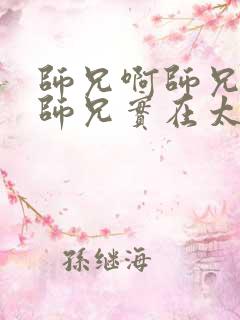 師兄啊師兄
師兄實在太
孫继海